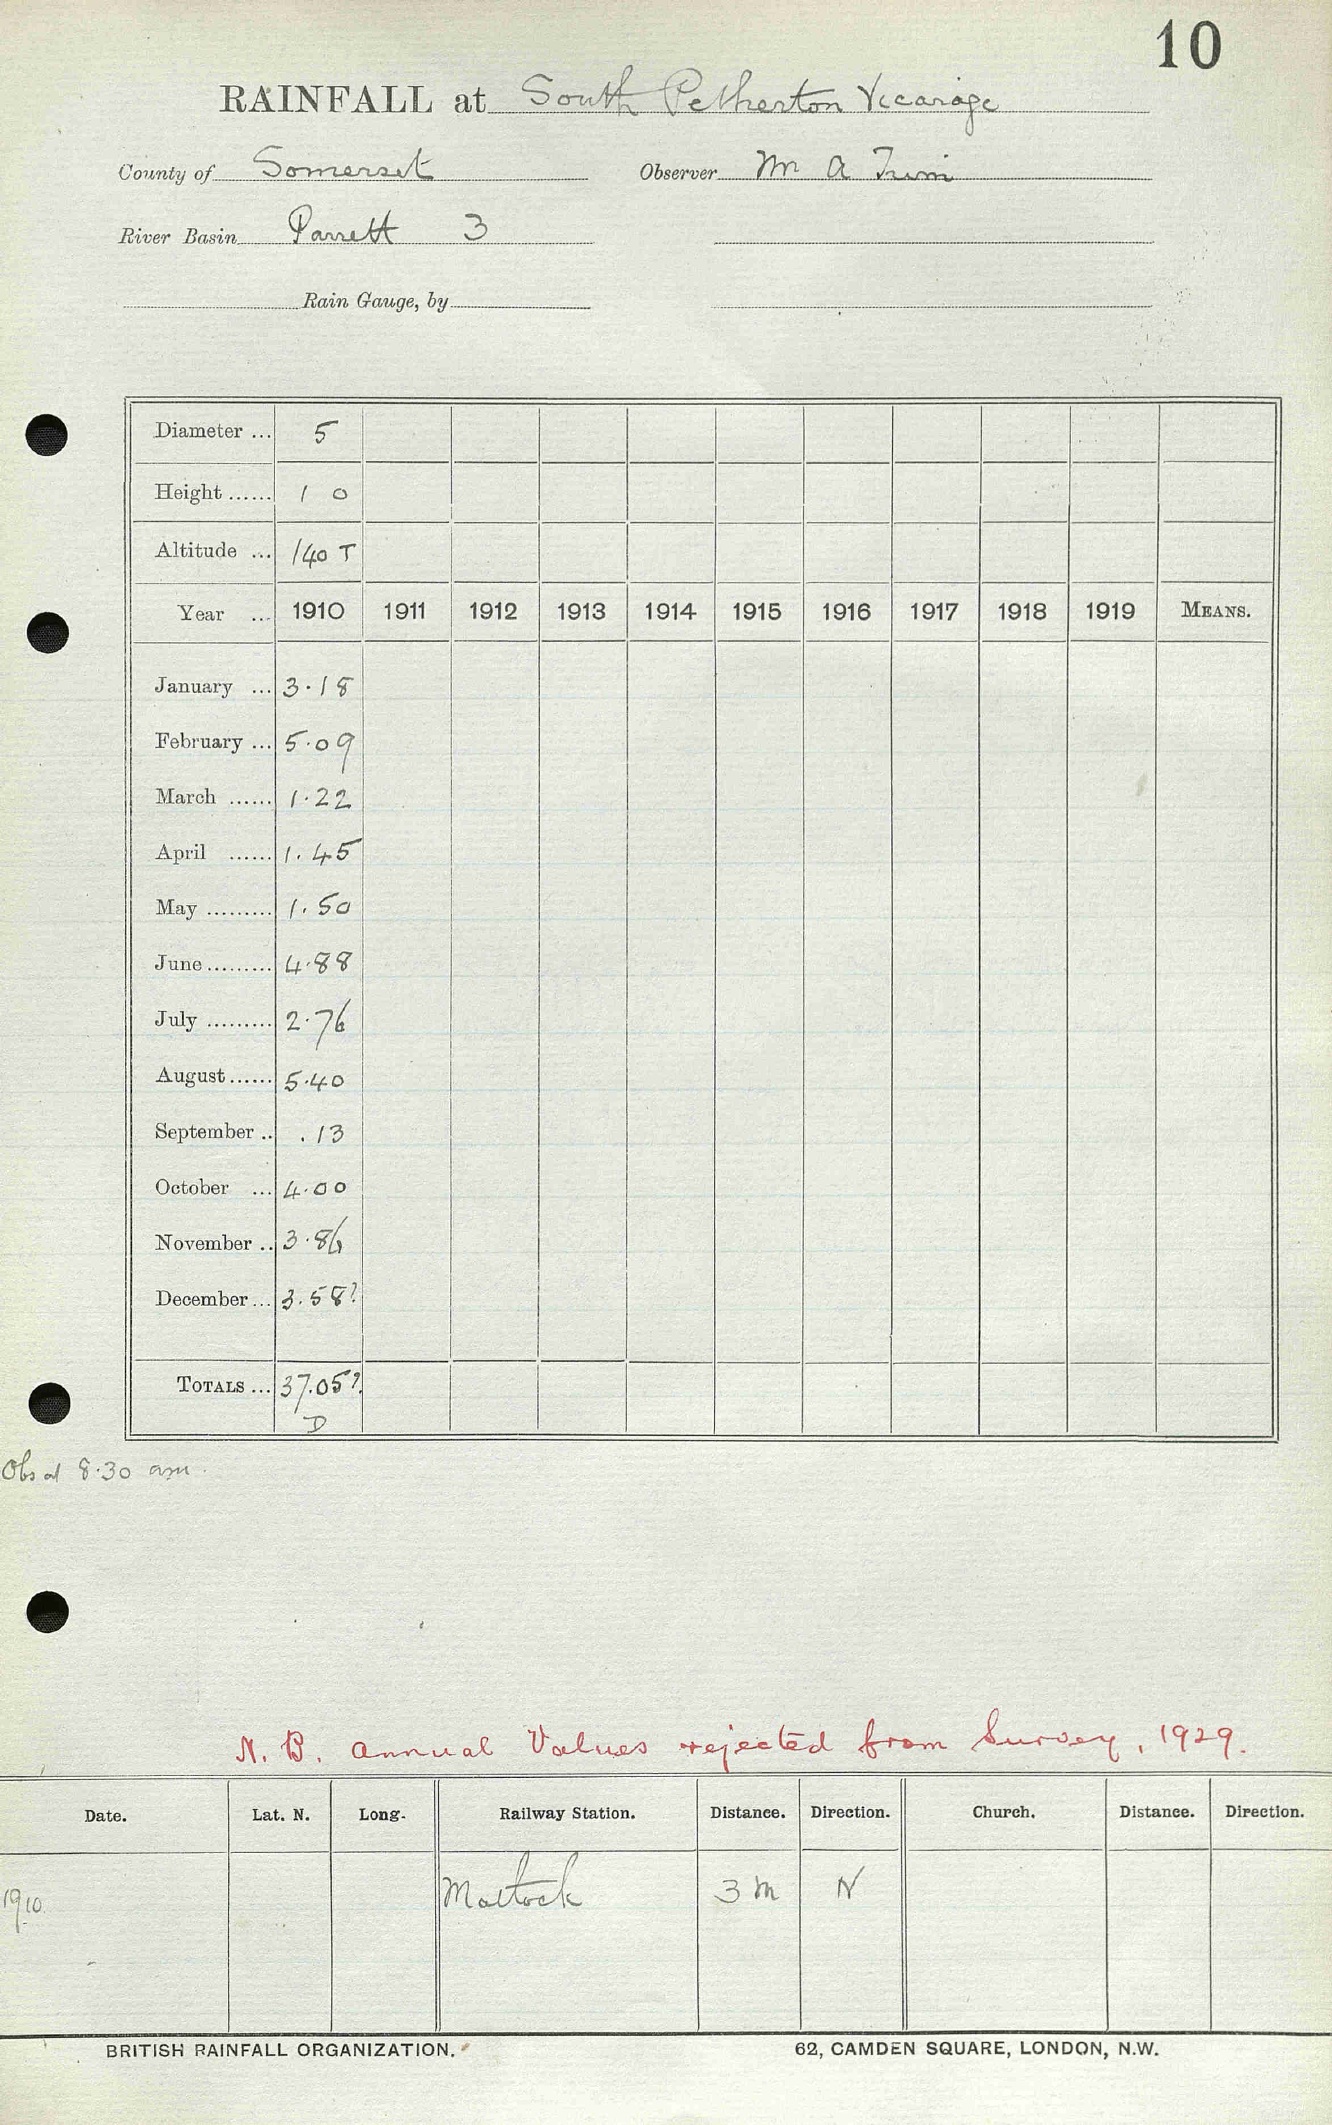 10
RAINFALL at South Petherton Vicarage
County of Somerset Observer Mr A Trim
River Basin Parrett 3
Rain Gauge, by
Diameter ... 5
Height ...... 1 0
Altitude ... 140 T
Year ... 1910 1911 1912 1913 1914 1915 1916 1917 1918 1919 MEANS.
January ... 3.18
February ... 5.09
March ...... 1.22
April ...... 1.45
May ......... 1.50
June ......... 4.88
July ......... 2.76
August ...... 5.40
September .. .13
October ... 4.00
November .. 3.86
December ... 3.58?
TOTALS ... 37.05?
D
Obs at 8.30 am.
N. B. Annual Values rejected from Survey, 1929.
Date. Lat. N. Long. Railway Station. Distance. Direction. Church. Distance. Direction.
1910. Martock 3 m N
BRITISH RAINFALL ORGANIZATION. 62, CAMDEN SQUARE, LONDON, N.W.